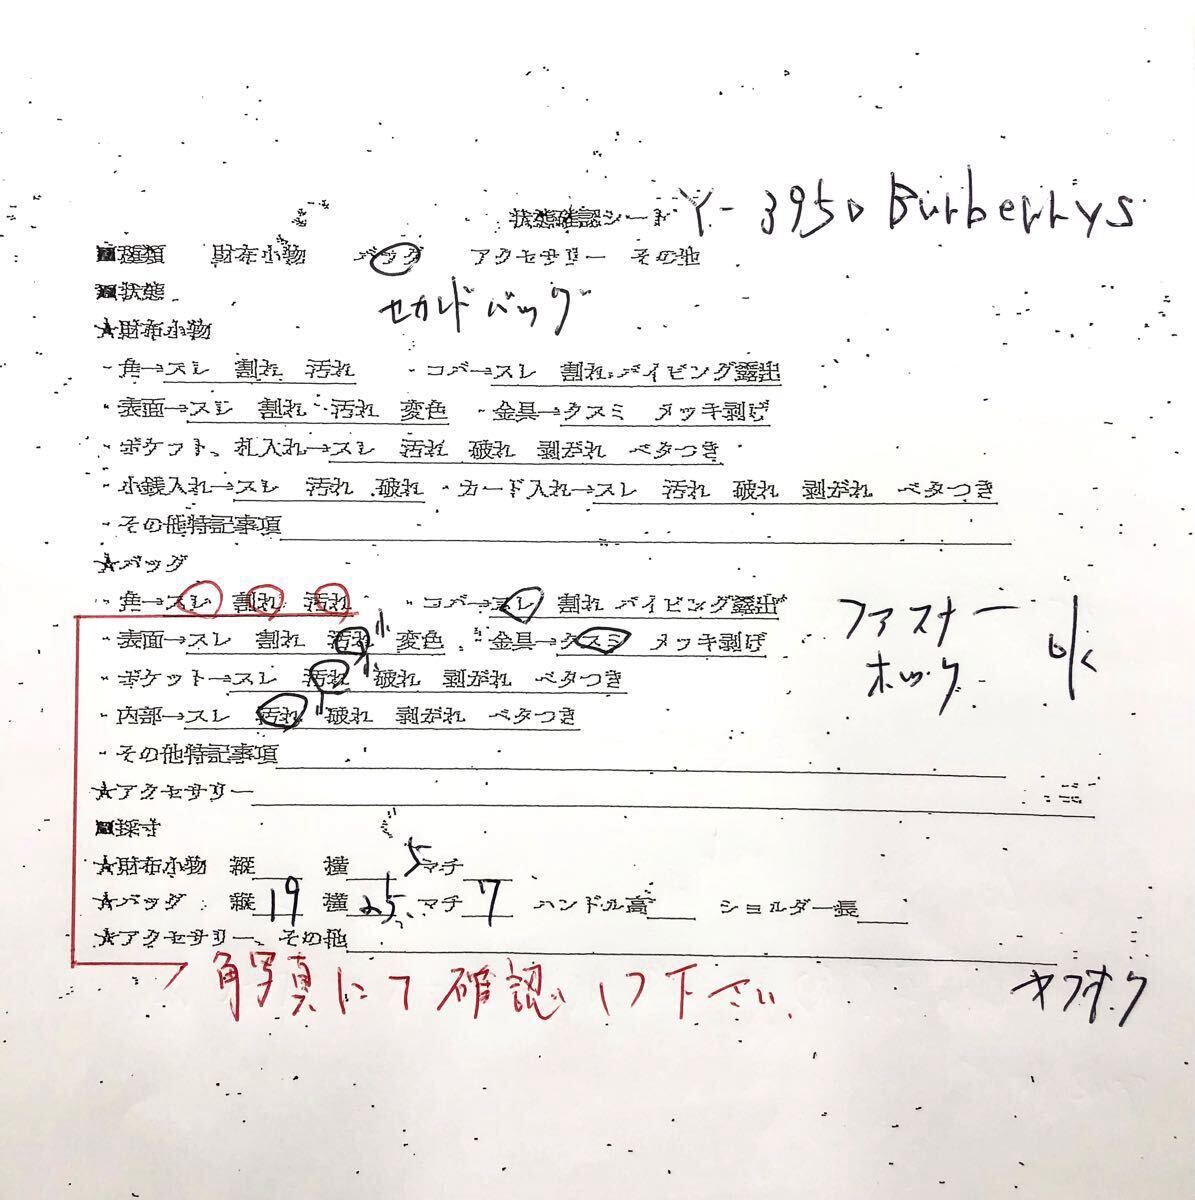 状態確認シート Y-3950 Burberrys
■種類 財布小物 バッグ アクセサリー その他
■状態
セカンドバッグ
★財布小物
・角→スレ 割れ 汚れ ・コバ→スレ 割れ パイピング露出
・表面→スレ 割れ 汚れ 変色 ・金具→クスミ メッキ剥げ
・ポケット、札入れ→スレ 汚れ 破れ 剥がれ ベタつき
・小銭入れ→スレ 汚れ 破れ ・カード入れ→スレ 汚れ 破れ 剥がれ ベタつき
・その他特記事項
★バッグ
・角→スレ 割れ 汚れ ・コバ→スレ 割れ パイピング露出
・表面→スレ 割れ 汚れ 小 変色 ・金具→クスミ メッキ剥げ
・ポケット→スレ 汚れ 小 破れ 剥がれ ベタつき
・内部→スレ 汚れ 小 破れ 剥がれ ベタつき
ファスナー
ホック
OK
・その他特記事項
★アクセサリー
■採寸
★財布小物 縦 横 マチ
★バッグ 縦 19 横 25.5 マチ 7 ハンドル高 ショルダー長
★アクセサリー、その他
角写真にて確認して下さい
ヤフオク